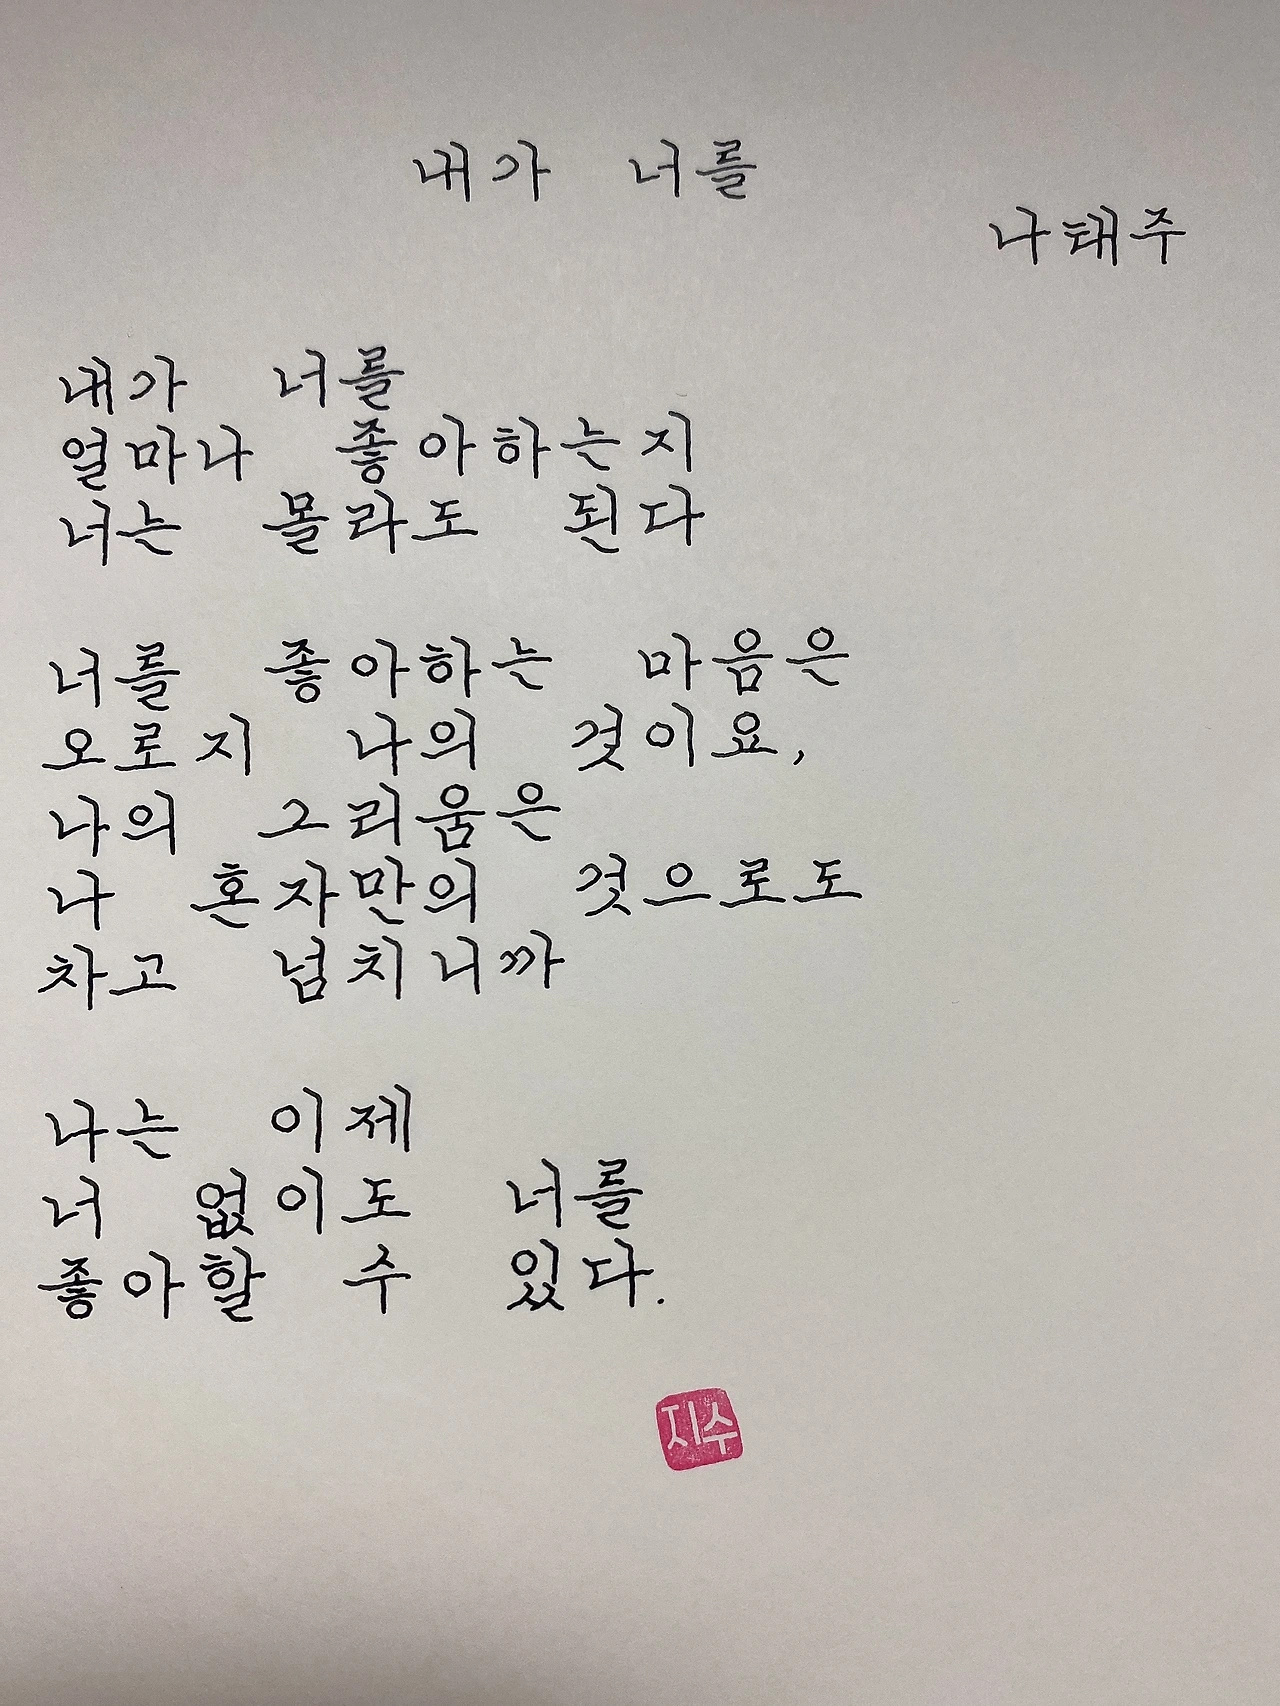 내가 너를
나태주
내가 너를
얼마나 좋아하는지
너는 몰라도 된다
너를 좋아하는 마음은
오로지 나의 것이요,
나의 그리움은
나 혼자만의 것으로도
차고 넘치니까
나는 이제
너 없이도 너를
좋아할 수 있다.
지수